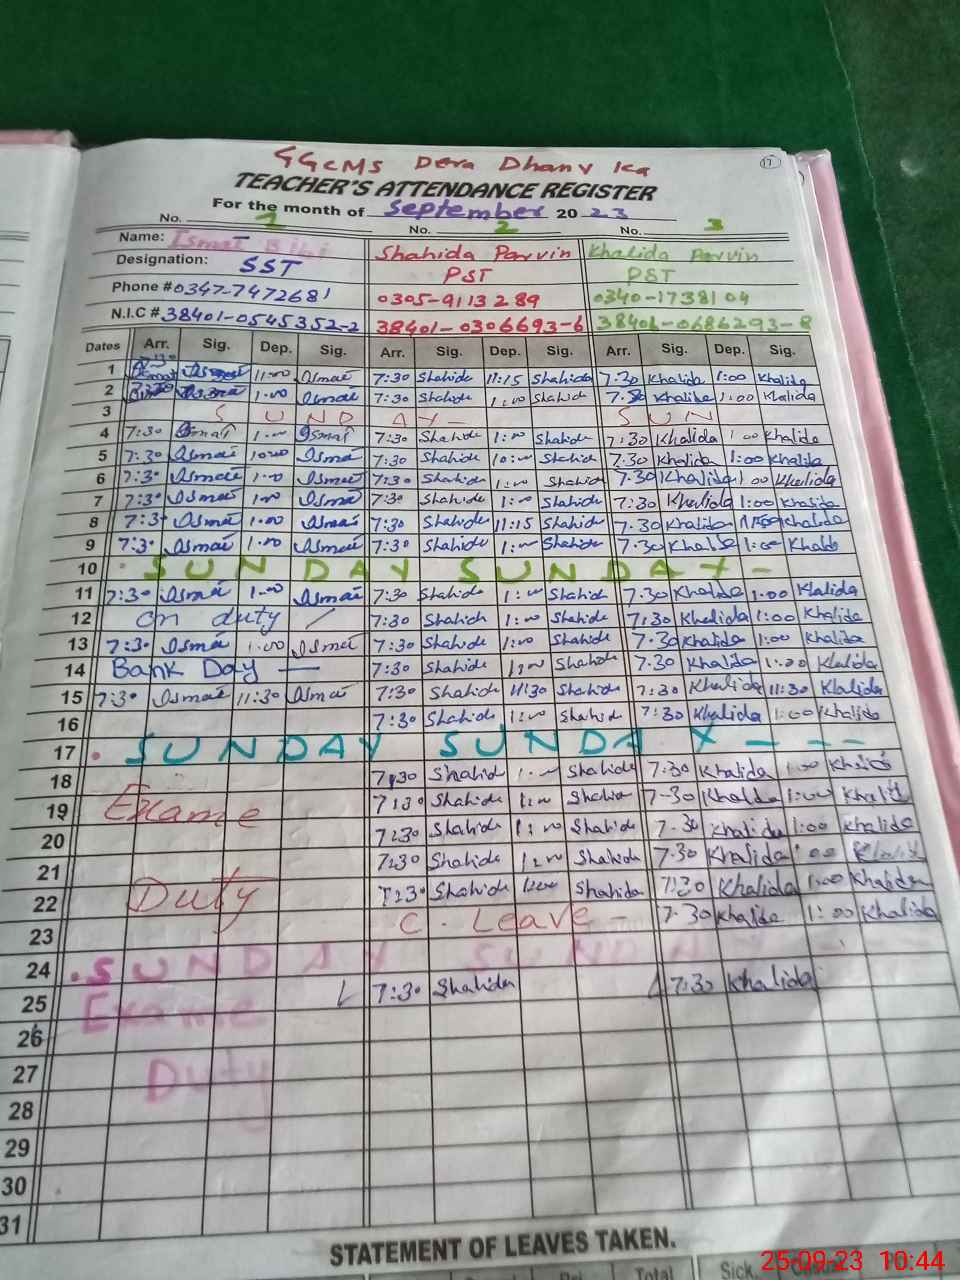 17
GGCMS Dera Dhanv Ka
TEACHER'S ATTENDANCE REGISTER
For the month of September 2023
No. 1 No. 2 No. 3
Name: Ismat Bibi Shahida Parvin Khalida Parvin
Designation: SST PST PST
Phone # 0347-7472681 0305-9113289 0340-1738104
N.I.C # 38401-0545352-2 38401-0306693-6 38401-0686293-8
Dates Arr. Sig. Dep. Sig. Arr. Sig. Dep. Sig. Arr. Sig. Dep. Sig.
1 11:00 Ismat 7:30 Shahida 11:15 Shahida 7:30 Khalida 1:00 Khalida
2 1:00 Ismat 7:30 Shahida 1:00 Shahida 7:30 Khalida 1:00 Khalida
3 SUNDAY - SUN
4 7:30 Ismat 1:00 Ismat 7:30 Shahida 1:00 Shahida 7:30 Khalida 1:00 Khalida
5 7:30 Ismat Ismat 7:30 Shahida 10:00 Shahida 7:30 Khalida 1:00 Khalida
6 7:30 Ismat 1:00 Ismat 7:30 Shahida 1:00 Shahida 7:30 Khalida 1:00 Khalida
7 7:30 Ismat 1:00 Ismat 7:30 Shahida 1:00 Shahida 7:30 Khalida 1:00 Khalida
8 7:30 Ismat 1:00 Ismat 7:30 Shahida 11:15 Shahida 7:30 Khalida Khalida
9 7:30 Ismat 1:00 Ismat 7:30 Shahida 1:00 Shahida 7:30 Khalida 1:00 Khalida
10 SUNDAY SUNDAY -
11 7:30 Ismat 1:00 Ismat 7:30 Shahida 1:00 Shahida 7:30 Khalida 1:00 Khalida
12 on duty / 7:30 Shahida 1:00 Shahida 7:30 Khalida 1:00 Khalida
13 7:30 Ismat 1:00 Ismat 7:30 Shahida 1:00 Shahida 7:30 Khalida 1:00 Khalida
14 Bank Day — 7:30 Shahida 1:00 Shahida 7:30 Khalida 1:00 Khalida
15 7:30 Ismat 11:30 Ismat 7:30 Shahida 11:30 Shahida 7:30 Khalida 11:30 Khalida
16 7:30 Shahida 1:00 Shahida 7:30 Khalida 1:00 Khalida
17 SUNDAY SUNDAY - - -
18 7:30 Shahida 1:00 Shahida 7:30 Khalida 1:00 Khalida
19 Exame 7:30 Shahida 1:00 Shahida 7:30 Khalida 1:00 Khalida
20 7:30 Shahida 1:00 Shahida 7:30 Khalida 1:00 Khalida
21 7:30 Shahida 1:00 Shahida 7:30 Khalida 1:00 Khalida
22 Duty 7:30 Shahida 1:00 Shahida 7:30 Khalida 1:00 Khalida
23 C. Leave - 7:30 Khalida 1:00 Khalida
24 SUNDAY SUNDAY - - -
25 Exame 7:30 Shahida 7:30 Khalida
26
27 Duty
28
29
30
31
STATEMENT OF LEAVES TAKEN.
Total Sick.
25-09-23 10:44